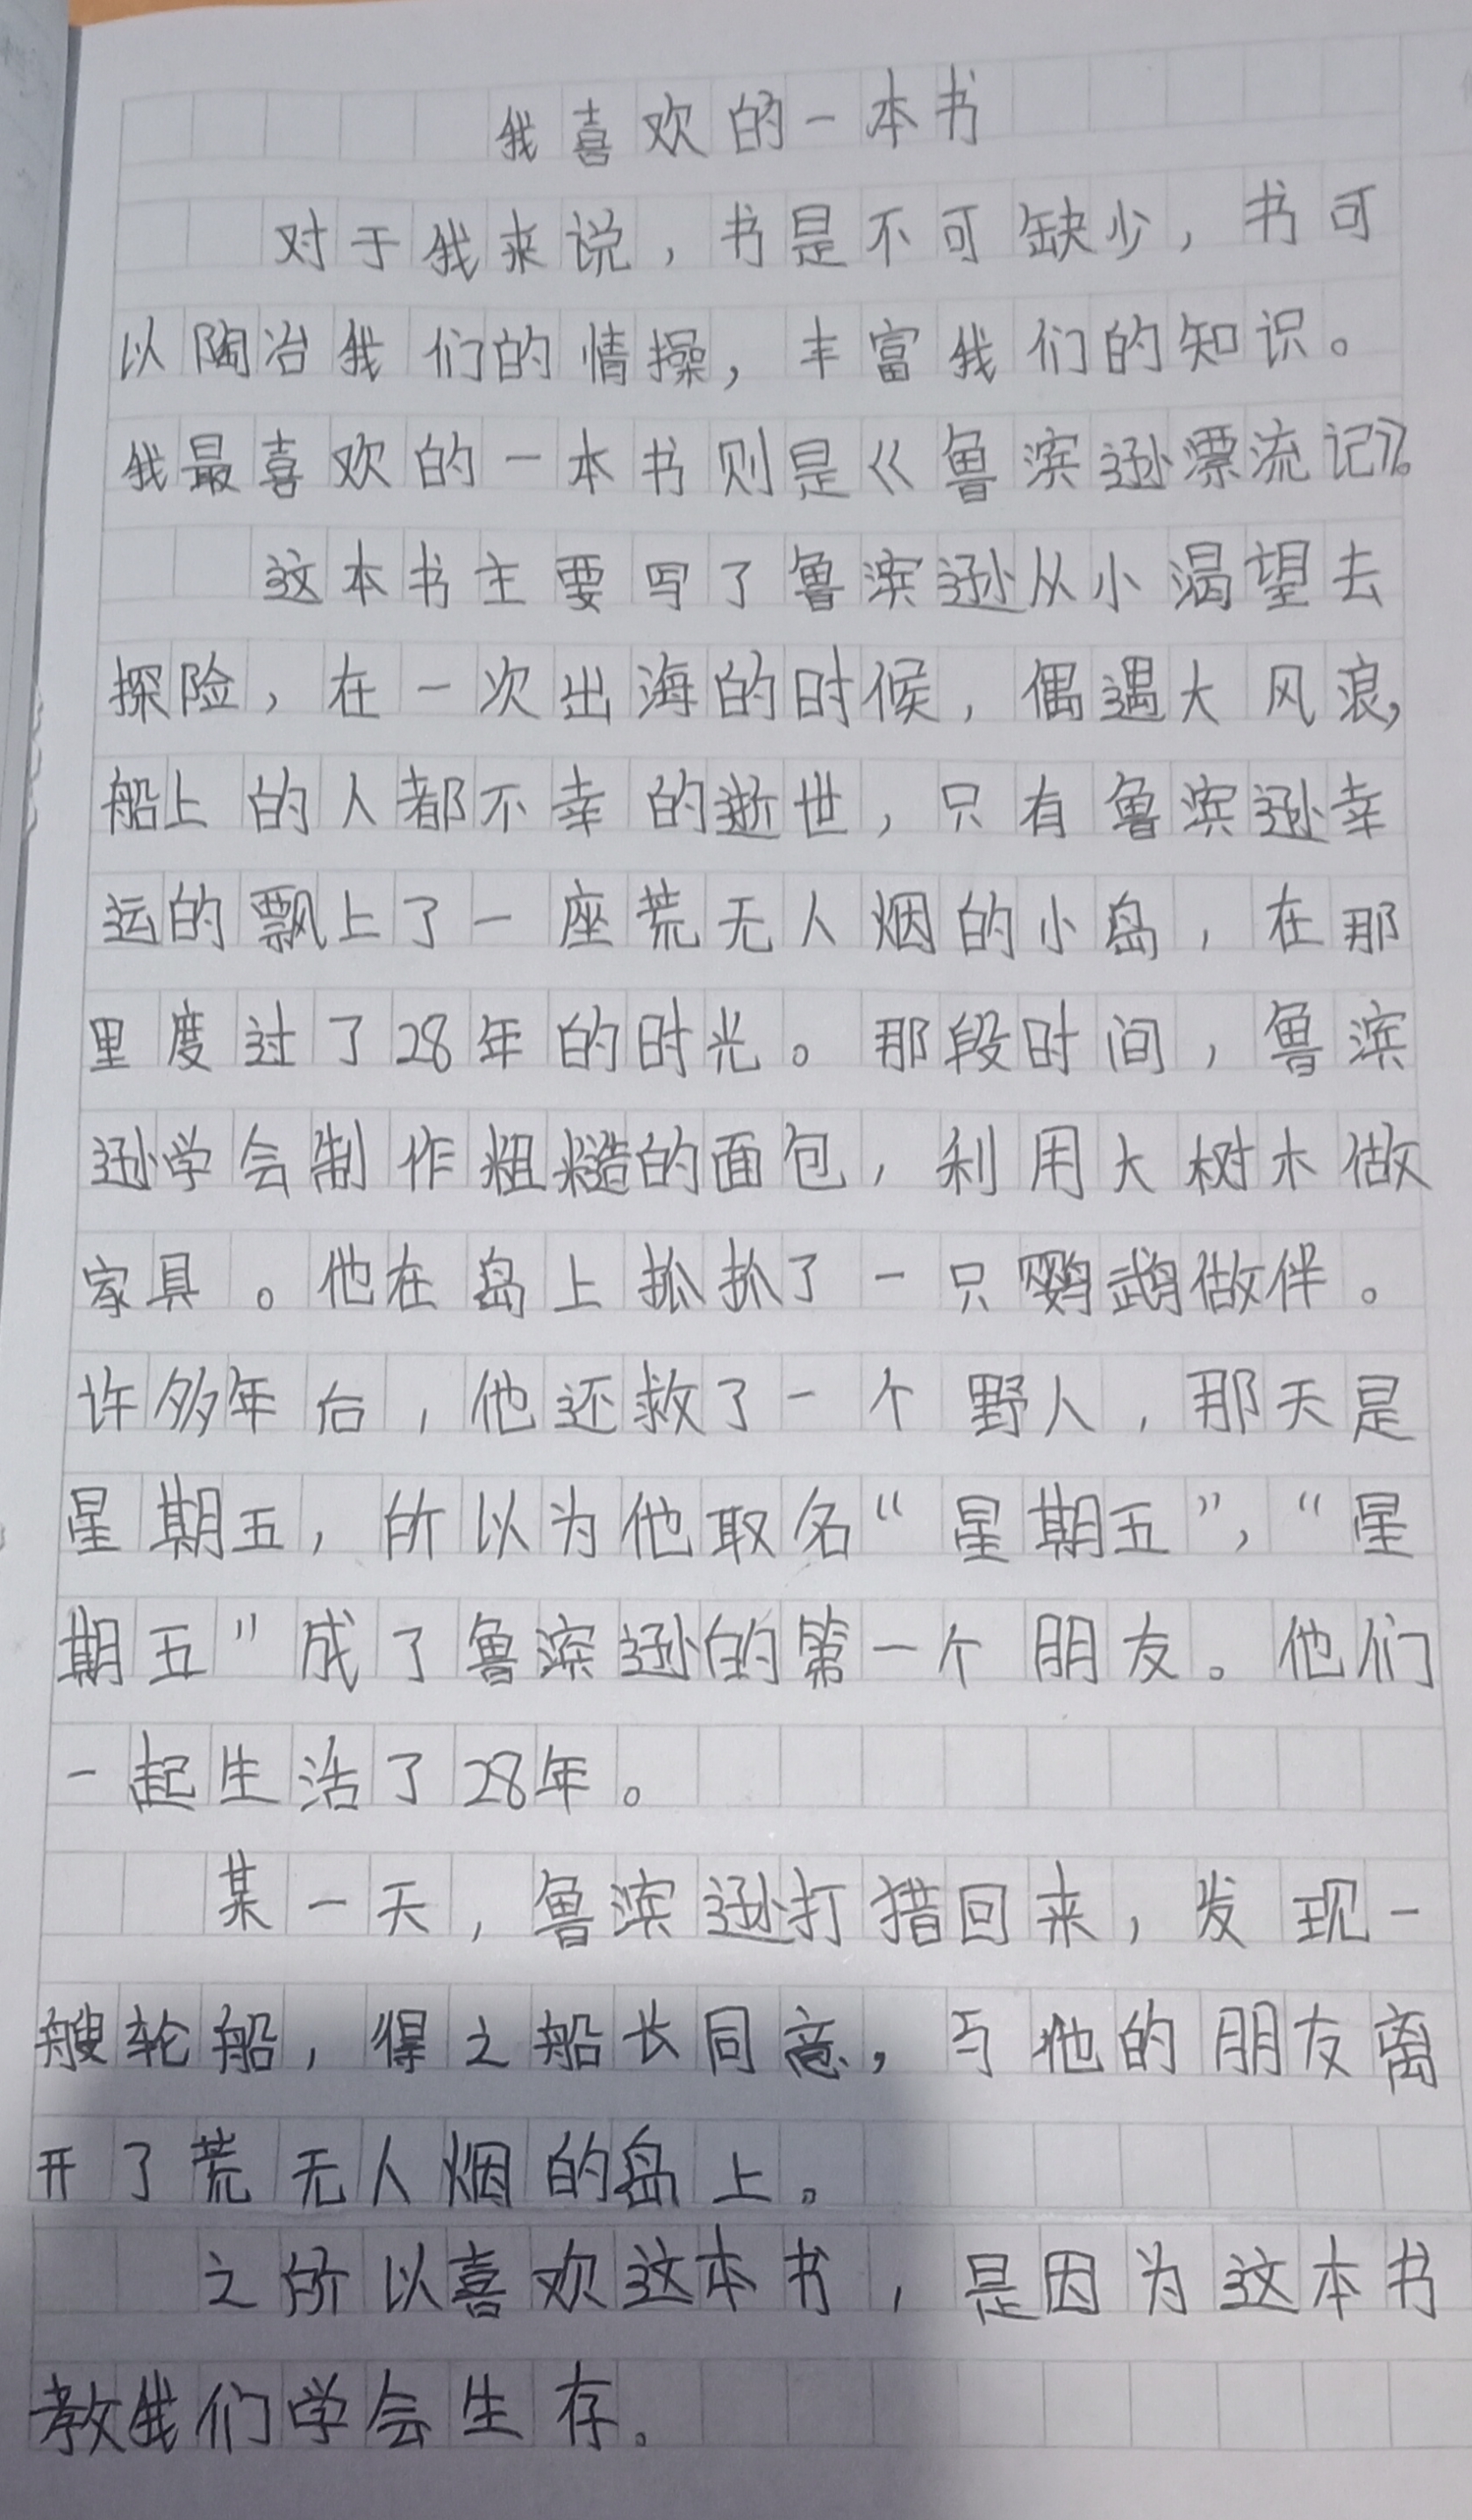 我喜欢的一本书
对于我来说，书是不可缺少，书可
以陶冶我们的情操，丰富我们的知识。
我最喜欢的一本书则是《鲁滨逊漂流记》。
这本书主要写了鲁滨逊从小渴望去
探险，在一次出海的时候，偶遇大风浪，
船上的人都不幸的逝世，只有鲁滨逊幸
运的飘上了一座荒无人烟的小岛，在那
里度过了28年的时光。那段时间，鲁滨
逊学会制作粗糙的面包，利用大树木做
家具。他在岛上抓抓了一只鹦鹉做伴。
许多年后，他还救了一个野人，那天是
星期五，所以为他取名“星期五”，“星
期五”成了鲁滨逊的第一个朋友。他们
一起生活了28年。
某一天，鲁滨逊打猎回来，发现一
艘轮船，得之船长同意，与他的朋友离
开了荒无人烟的岛上。
之所以喜欢这本书，是因为这本书
教我们学会生存。